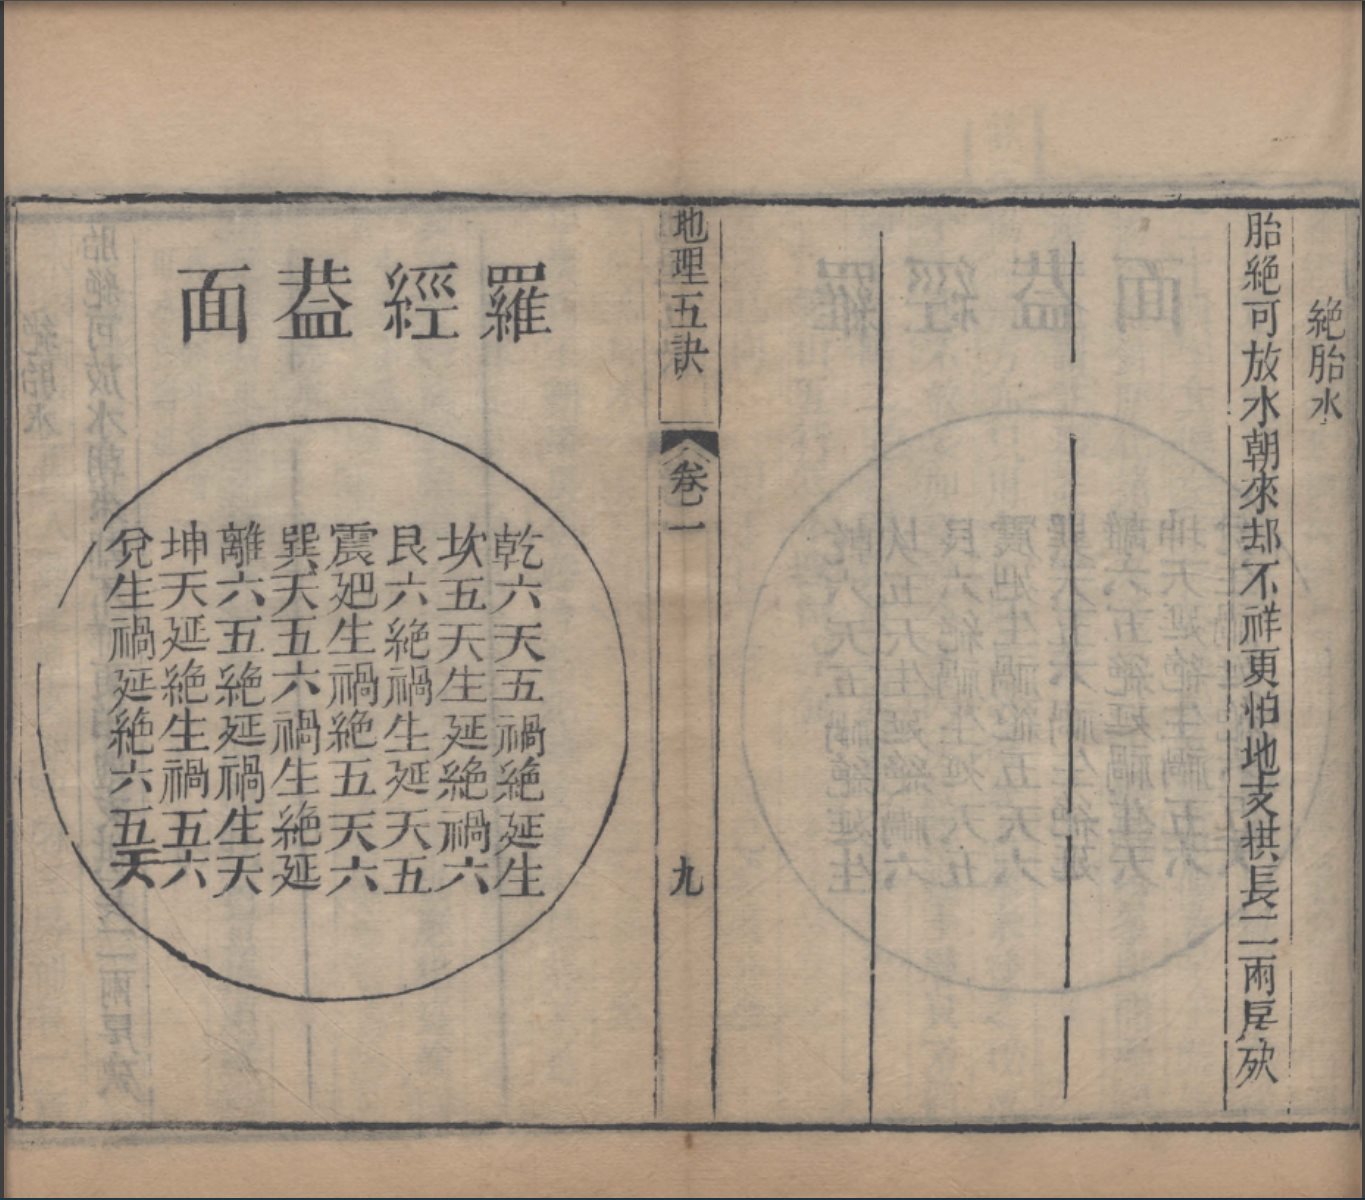 絶胎水
胎絶可放水朝來却不祥更怕地支拱長二兩房殃
地理五訣
卷一
九
羅經葢面
乾六天五禍絶延生
坎五天生延絶禍六
艮六絶禍生延天五
震廵生禍絶五天六
巽天五六禍生絶延
離六五絶延禍生天
坤天延絶生禍五六
兊生禍延絶六五天